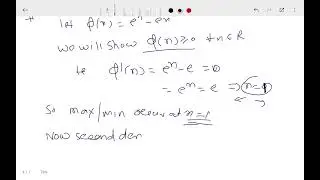 let φ(n) = eⁿ - en
we will show φ(n) ≥ 0 ∀ n ∈ R
φ'(n) = eⁿ - e = 0
= eⁿ = e ⇒ n = 1
So max/min occur at n = 1
Now second der